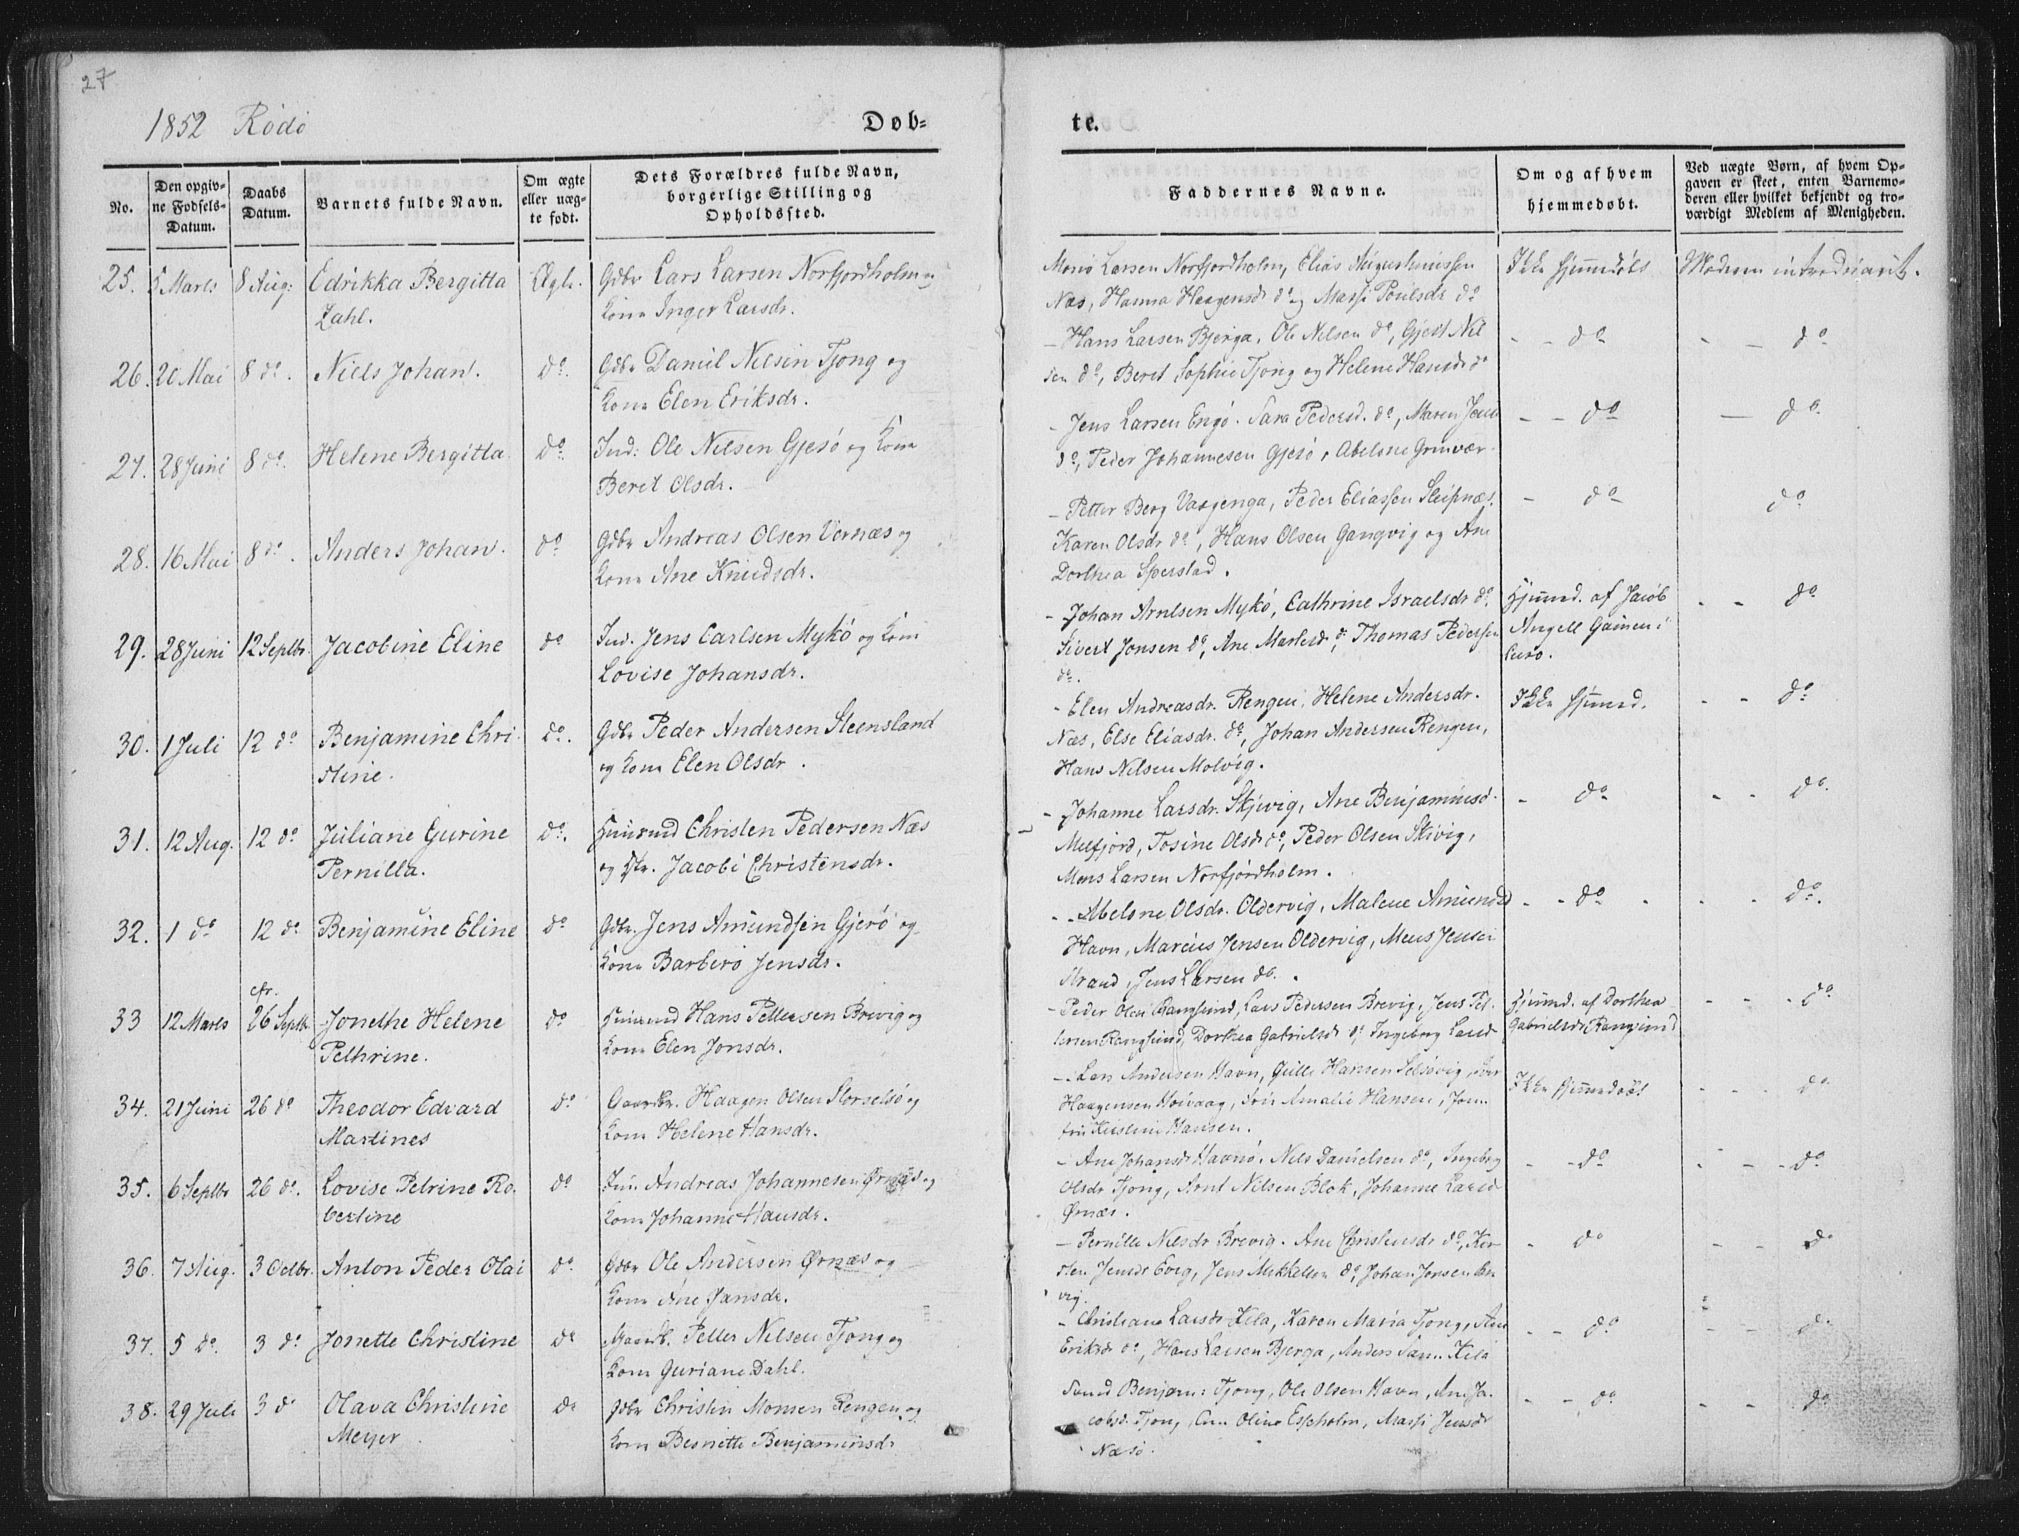 27
1852 Rödö
Döb=
te.
No.
Den opgiv-
ne Födsels-
Datum.
Daabs
Datum.
Barnets fulde Navn.
Om ægte
eller uæg-
te födt.
Dets Forældres fulde Navn,
borgerlige Stilling og
Opholdssted.
Faddernes Navne.
Om og af hvem
hjemmedöbt.
Ved uægte Börn, af hvem Op-
gaven er skeet, enten Barnemo-
deren eller hvilket bekjendt og tro-
værdigt Medlem af Menigheden.
25. 5 Marts 8 Aug: Edrikka Bergitta Ægte. Gdbr Lars Larsen Norfjordholm og
Zahl. Kone Inger Larsdr.
Larsen Norfjordholm, Elias Augustinussen
Næs, Hanna Haagensdr do og Massi Poulsdr do
Ikke hjemmedöbt
Moderen introduceret.
26. 20 Mai 8 do. Niels Johan. do. Gdbr Daniel Nilsen Tjong og
Kone Elen Eriksdr.
- Hans Larsen Bjerga, Ole Nilsen do, Gjert Nil
sen do, Beret Sophie Tjong og Helene Hansdr do
- - do
- - do
27. 28 Juni 8 do. Helene Bergitta do Ind: Ole Nilsen Gjesö og Kone
Beret Olsdr.
- Jens Larsen Engö. Sara Pedersd. do, Maren Jens
do, Peder Johannesen Gjesö, Abelone Grinvær.
- - do
- do
28. 16 Mai 8 do. Anders Johan. do Gdbr Andreas Olsen Vernæs og
Kone Ane Knudsdr.
- Petter Berg Vaagenga, Peder Eliassen Sleipnæs.
Karen Olsdr do, Hans Olsen Gangvig og Ane
Dorthea Sperstad.
- do
do
29. 28 Juni 12 Septbr. Jacobine Eline do Ind. Jens Carlsen Mykö og Kone
Lovise Johansdr.
- Johan Arntsen Mykö, Cathrine Israelsdr do,
Sivert Jonsen do, Ane Martesdr do, Thomas Pedersen
do.
Hjemmd. af Jacob
Angell
- - do
30. 1 Juli 12 do Benjamine Chri- do. Gdbr Peder Andersen Steensland
stine. og Kone Elen Olsdr.
- Elen Andreasdr. Rengen, Helene Andersdr.
Næs, Else Eliasdr. do, Johan Andersen Rengen,
Hans Nilsen Molvig.
Ikke hjemmd.
- - do
31. 12 Aug. 12 do Juliane Gurine do. Huusmd Christen Pedersen Næs
Pernilla. og Jacobi Christensdr.
- Johanne Larsdr. Skjivig, Ane Benjaminsd.
Melfjord, Tosine Olsdr do, Peder Olsen Skivig,
Mons Larsen Norfjordholm.
- do
- - do.
32. 1 do 12 do Benjamine Eline do Gdbr. Jens Amundsen Gjerö og
Kone Barbero Jensdr.
- Abelone Olsdr. Oldervig, Malene Amundsd
Havn, Marcus Jensen Oldervig, Mens Jensen
Strand, Jens Larsen do.
- - do -
- - do.
cfr.
33 12 Marts 26 Septb. Jonethe Helene do Huusmd Hans Pettersen Brevig og
Pethrine. Kone Elen Jonsdr.
- Peder Olsen Rangsund, Lars Pedersen Brevig, Jens Pet-
tersen Rangsund, Dorthea Gabrielsdr do, Ingeborg Larsdr
Hjemmd. af Dorthea
Gabrielsdr Rangsund
- - - do
34. 21 Juni 26 do Theodor Edvard do Gaardbr. Haagen Olsen Storselsö og
Martines Kone Helene Hansdr.
- Lars Andersen Havn, Gulle Hansen Selsövig,
Haagensen Hoivaag, Amalie Hansen, Jom
fru Kirstine Hansen.
Ikke hjemmedöbt
- - do
35. 6 Septbr 26 do. Lovise Petrine Ro- do Andreas Johannesen Örnæs og
bertine Kone Johanne Hansdr.
- Ane Johansdr Havnö, Nils Danielsen do, Ingeborg
Olsdr Tjong, Arnt Nilsen Blok, Johanne Larsd
Örnæs.
- - do
- - - do
36. 7 Aug. 3 Octbr. Anton Peder Olai do. Gdbr Ole Andersen Örnæs og
Kone Ane Jansdr.
- Pernille Nilsdr Brevig. Ane Christensdr do, Kir
sten Jensdr Evig, Jens Mikkelsen do, Johan Jonsen Bre
vig.
- do
- - do
37. 5 do. 3 do Jonette Christine do Gaardb. Petter Nilsen Tjong og
Kone Guriane Dahl.
- Christiane Larsdr Kila, Karen Maria Tjong, Ane
Eriksdr do, Hans Larsen Bjerga, Anders Kila
- - do
- - do
38. 29 Juli 3 do Olava Christine do Gdbr Christen Monsen Rengen og
Meyer Kone Besnette Benjaminsdr
Benjam: Tjong, Ole Olsen Havn, Ane Ja-
cobsd. Tjong, Olina Esseholm, Massi Jensdr
Næsö.
- - do
- - do